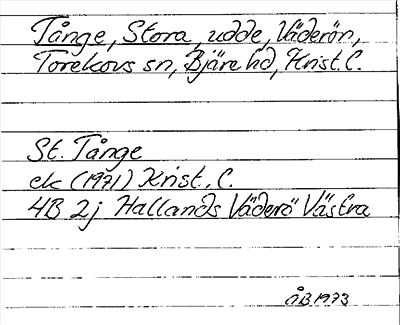 Tånge, Stora, udde, Väderön,
Torekovs sn, Bjäre hd, Krist. l.
St. Tånge
ek (1971) Krist. l.
4B 2j Hallands Väderö Västra
ÅB 1973